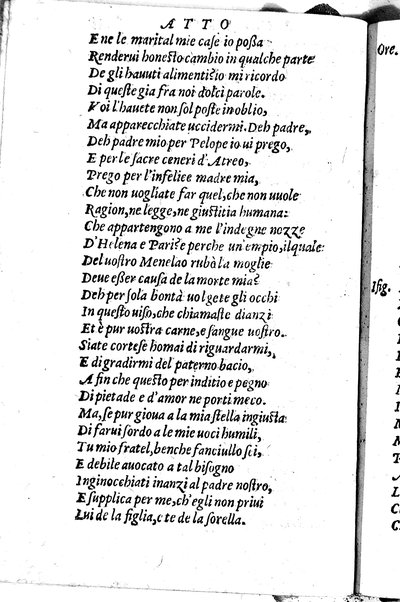 ATTO
E ne le marital mie case io poßa
Renderui honesto cambio in qualche parte
De gli hauuti alimenti? io mi ricordo
Di queste gia fra noi dolci parole.
Voi l'hauete non sol poste in oblio,
Ma apparecchiate uccidermi. Deh padre,
Deh padre mio per Pelope io ui prego,
E per le sacre ceneri d'Atreo,
Prego per l'infelice madre mia,
Che non uogliate far quel, che non uuole
Ragion, ne legge, ne giustitia humana:
Che appartengono a me l'indegne nozze
D'Helena e Pari? e perche un'empio, ilquale
Del uostro Menelao rubà la moglie
Deue eßer causa de la morte mia?
Deh per sola bontà uolgete gli occhi
In questo uiso, che chiamaste dianzi
Et è pur uostra carne, e sangue uostro.
Siate cortese homai di riguardarmi,
E di gradirmi del paterno bacio,
A fin che questo per inditio e pegno
Di pietade e d'amor ne porti meco.
Ma, se pur gioua a la mia stella ingiusta
Di farui sordo a le mie uoci humili,
Tu mio fratel, benche fanciullo sei,
E debile auocato a tal bisogno
Inginocchiati inanzi al padre nostro,
E supplica per me, ch'egli non priui
Lui de la figlia, e te de la sorella.
Ore.
Isig.